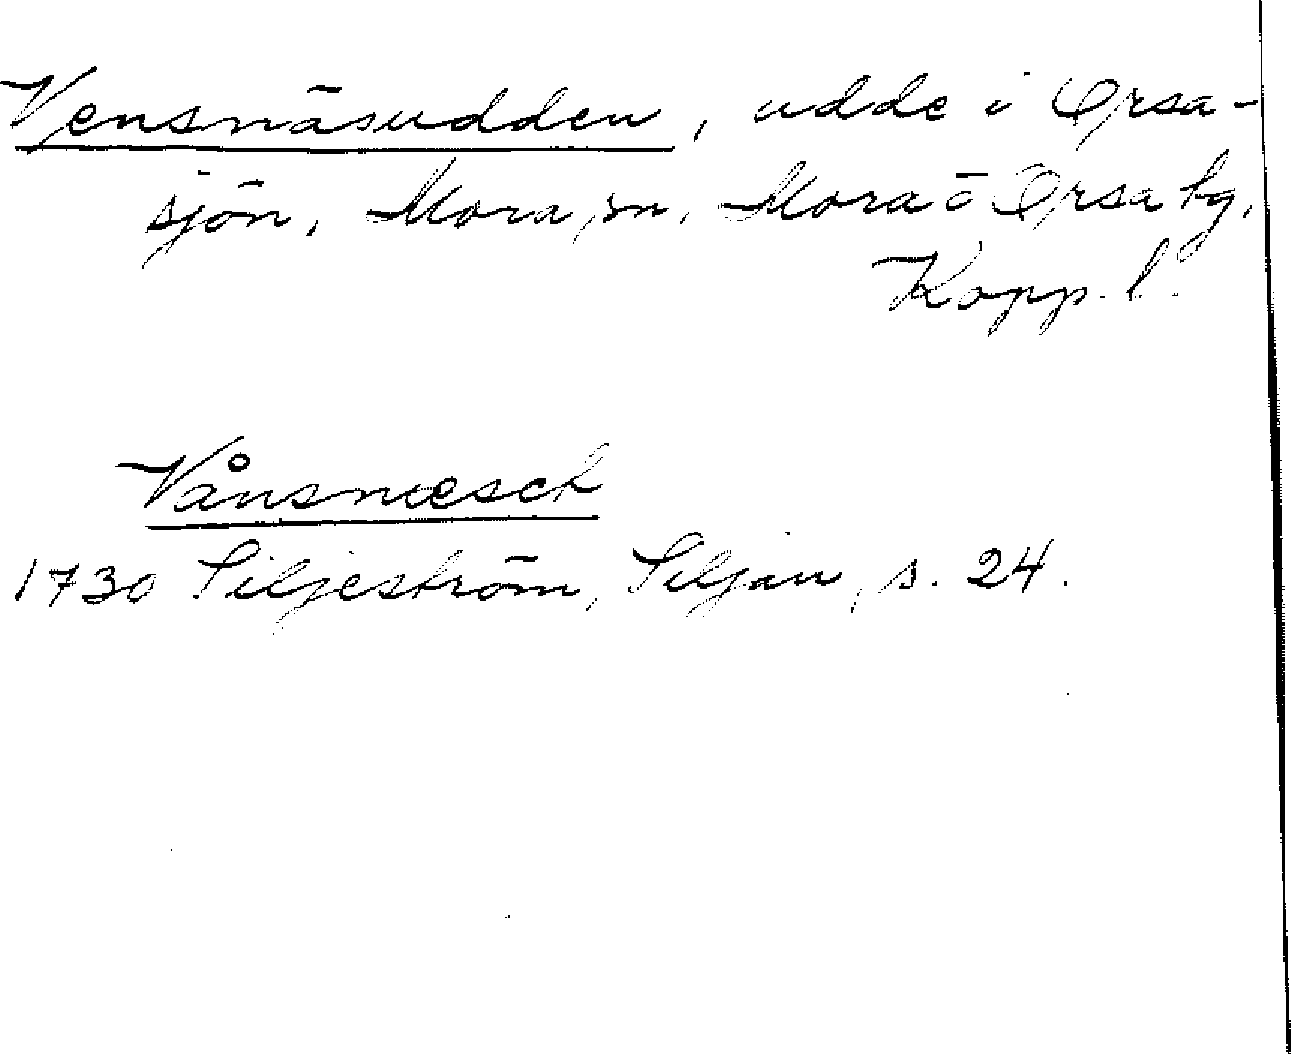 Vensnäsudden, udde i Orsa-
sjön, Mora sn, Mora o Orsa tg,
Kopp. l.
Vånsnæsck
1730 Siljeström, Siljan, s. 24.